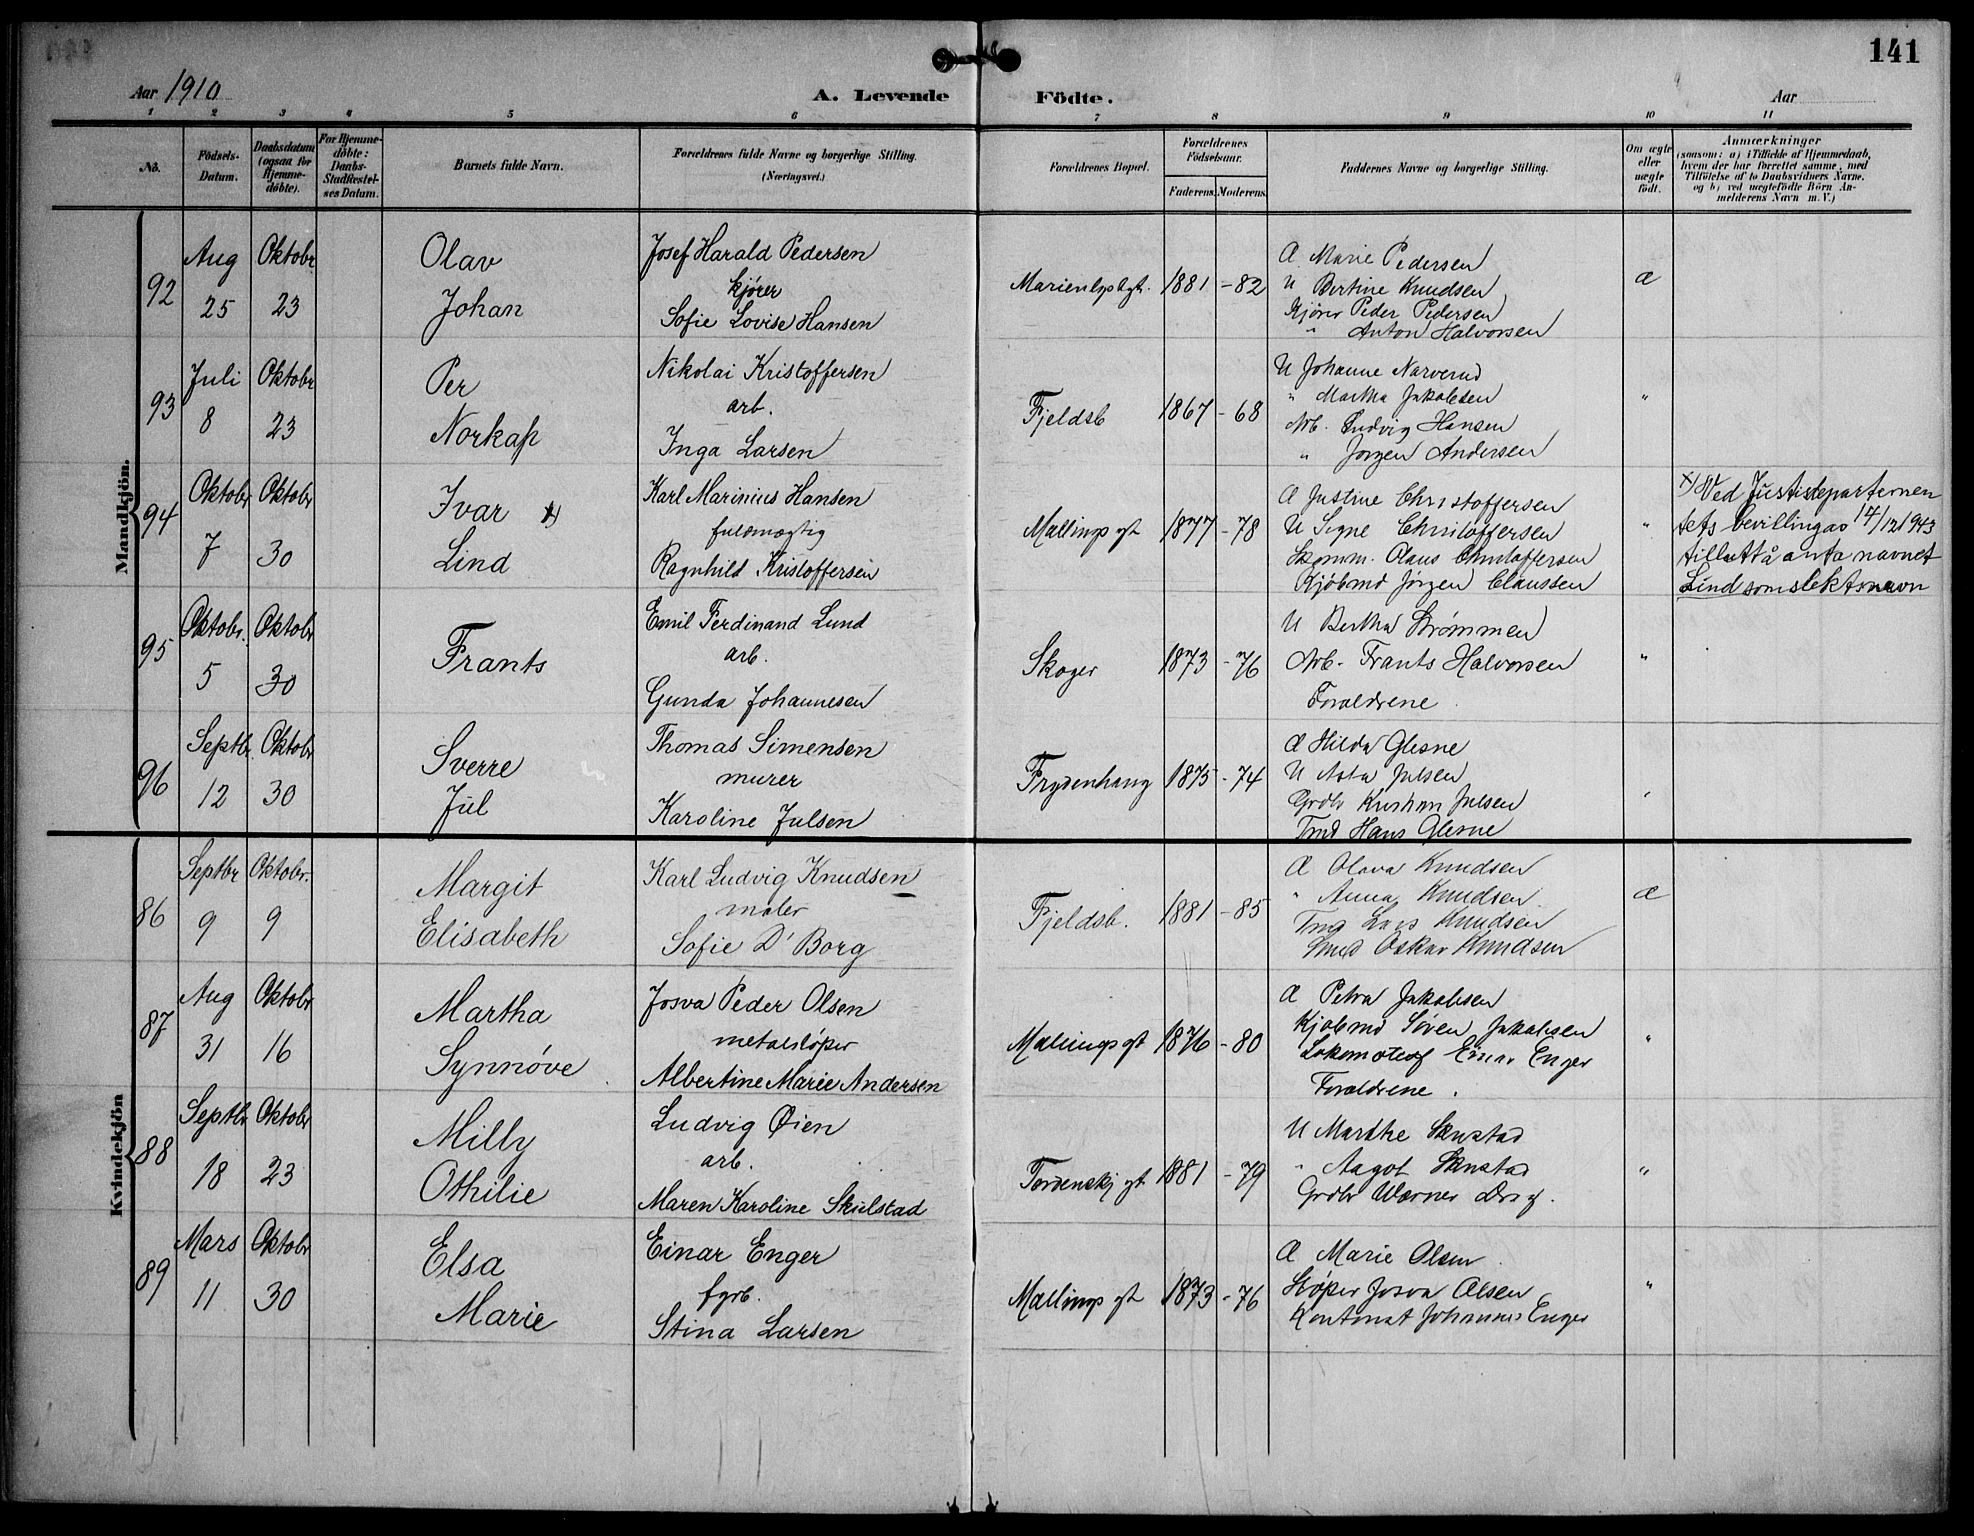 141
Aar 1910
A. Levende Födte.
Aar
1 2 3 4 5 6 7 8 9 10 11
No.
Födsels-Datum.
Daabsdatum (ogsaa for Hjemme-döbte).
For Hjemme-döbte: Daabs-Stadfæstel-ses Datum.
Barnets fulde Navn.
Forældrenes fulde Navne og borgerlige Stilling.
(Næringsvei.)
Forældrenes Bopæl.
Forældrenes Födselsaar.
Faderens. Moderens.
Faddernes Navne og borgerlige Stilling.
Om ægte eller uægte födt.
Anmærkninger
(saasom: a) i Tilfælde af Hjemmedaab,
hvem der har forrettet samme, med
Tilföielse af to Daabsvidners Navne,
og b) ved uægtefödte Börn An-
melderens Navn m. V.)
Mandkjön.
92 Aug 25 Oktobr 23
Olav Johan
Josef Harald Pedersen
kjører
Sofie Lovise Hansen
Marienlystgt. 1881 - 82
Æ Marie Pedersen
U Bertine Knudsen
Kjører Peder Pedersen
" Anton Halvorsen
Æ
93 Juli 8 Oktobr 23
Per Norkap
Nikolai Kristoffersen
arb.
Inga Larsen
Fjeldsb 1867 - 68
U Johanne Narverud
" Martha Jakobsen
Arb. Ludvig Hansen
" Jørgen Andersen
"
94 Oktobr 7 Oktobr 30
Ivar x) Lind
Karl Marinius Hansen
fuldmægtig
Ragnhild Kristoffersen
Mallings gt 1877 - 78
Æ Justine Christoffersen
U Signe Christoffersen
Skomm. Olaus Christoffersen
Kjøbmd Jørgen Claussen
"
x) Ved Justisdepartemen
tets bevilling av 17/12 1943
tillatt å anta navnet
Lind som slektsnavn
95 Oktobr. 5 Oktobr 30
Frants
Emil Ferdinand Lund
arb.
Gunda Johannesen
Skoger 1873 - 76
U Bertha Strømmen
Arb. Frants Halvorsen
Forældrene
"
96 Septbr. 12 Oktobr 30
Sverre Jul
Thomas Simensen
murer
Karoline Julsen
Frydenhaug 1875 - 74
Æ Hilda Glesne
U Asta Julsen
Grdbr Kristian Julsen
Tmd Hans Glesne
"
Kvindekjön
86 Septbr 9 Oktobr. 9
Margit Elisabeth
Karl Ludvig Knudsen
maler
Sofie D' Borg
Fjeldsb. 1881 - 85
Æ Olava Knudsen
" Anna Knudsen
Lars Knudsen
Smed Oskar Knudsen
Æ
87 Aug 31 Oktobr 16
Martha Synnøve
Josva Peder Olsen
metalstøper
Albertine Marie Andersen
Mallings gt 1876 - 80
Æ Petra Jakobsen
Kjøbmd Søren Jakobsen
Einar Enger
Forældrene.
"
88 Septbr 18 Oktobr 23
Milly Othilie
Ludvig Øien
arb.
Maren Karoline Skulstad
Tordenskj gt 1881 - 79
U Marthe Skustad
" Aagot Skustad
Grdbr Werner
"
89 Mars 11 Oktobr 30
Elsa Marie
Einar Enger
fyrb.
Stina Larsen
Mallings gt 1873 - 76
Æ Marie Olsen
Støper Josva Olsen
Kontorist Johannes Enger
"